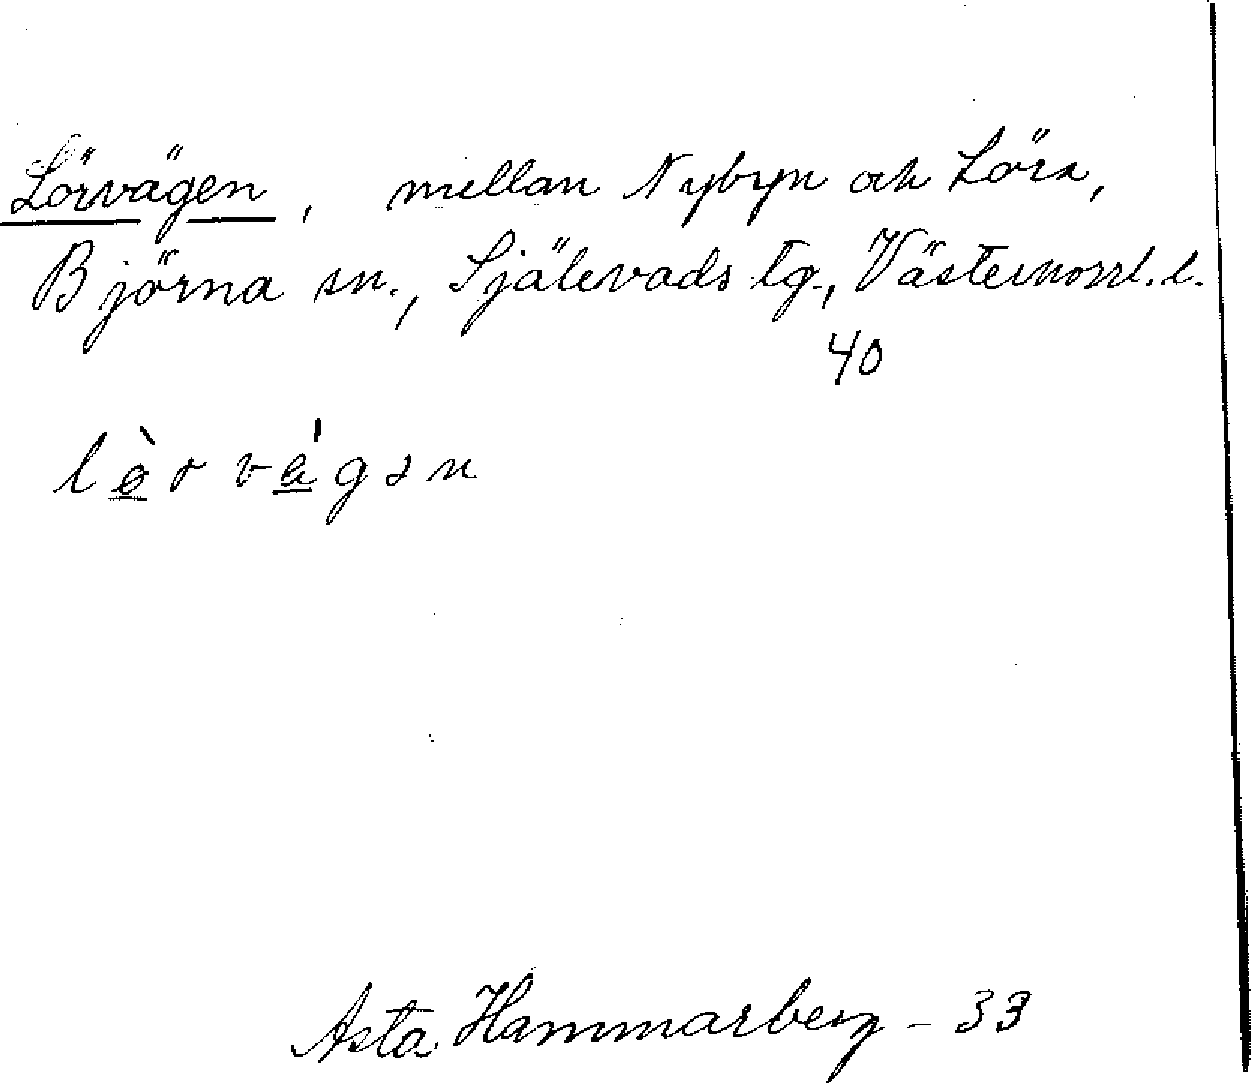 Lörvägen, mellan Nybyn och Lörn,
Björna sn., Själevads tg., Västernorrl. l.
40
lö̀rvä́gən
Asta Hammarberg - 33